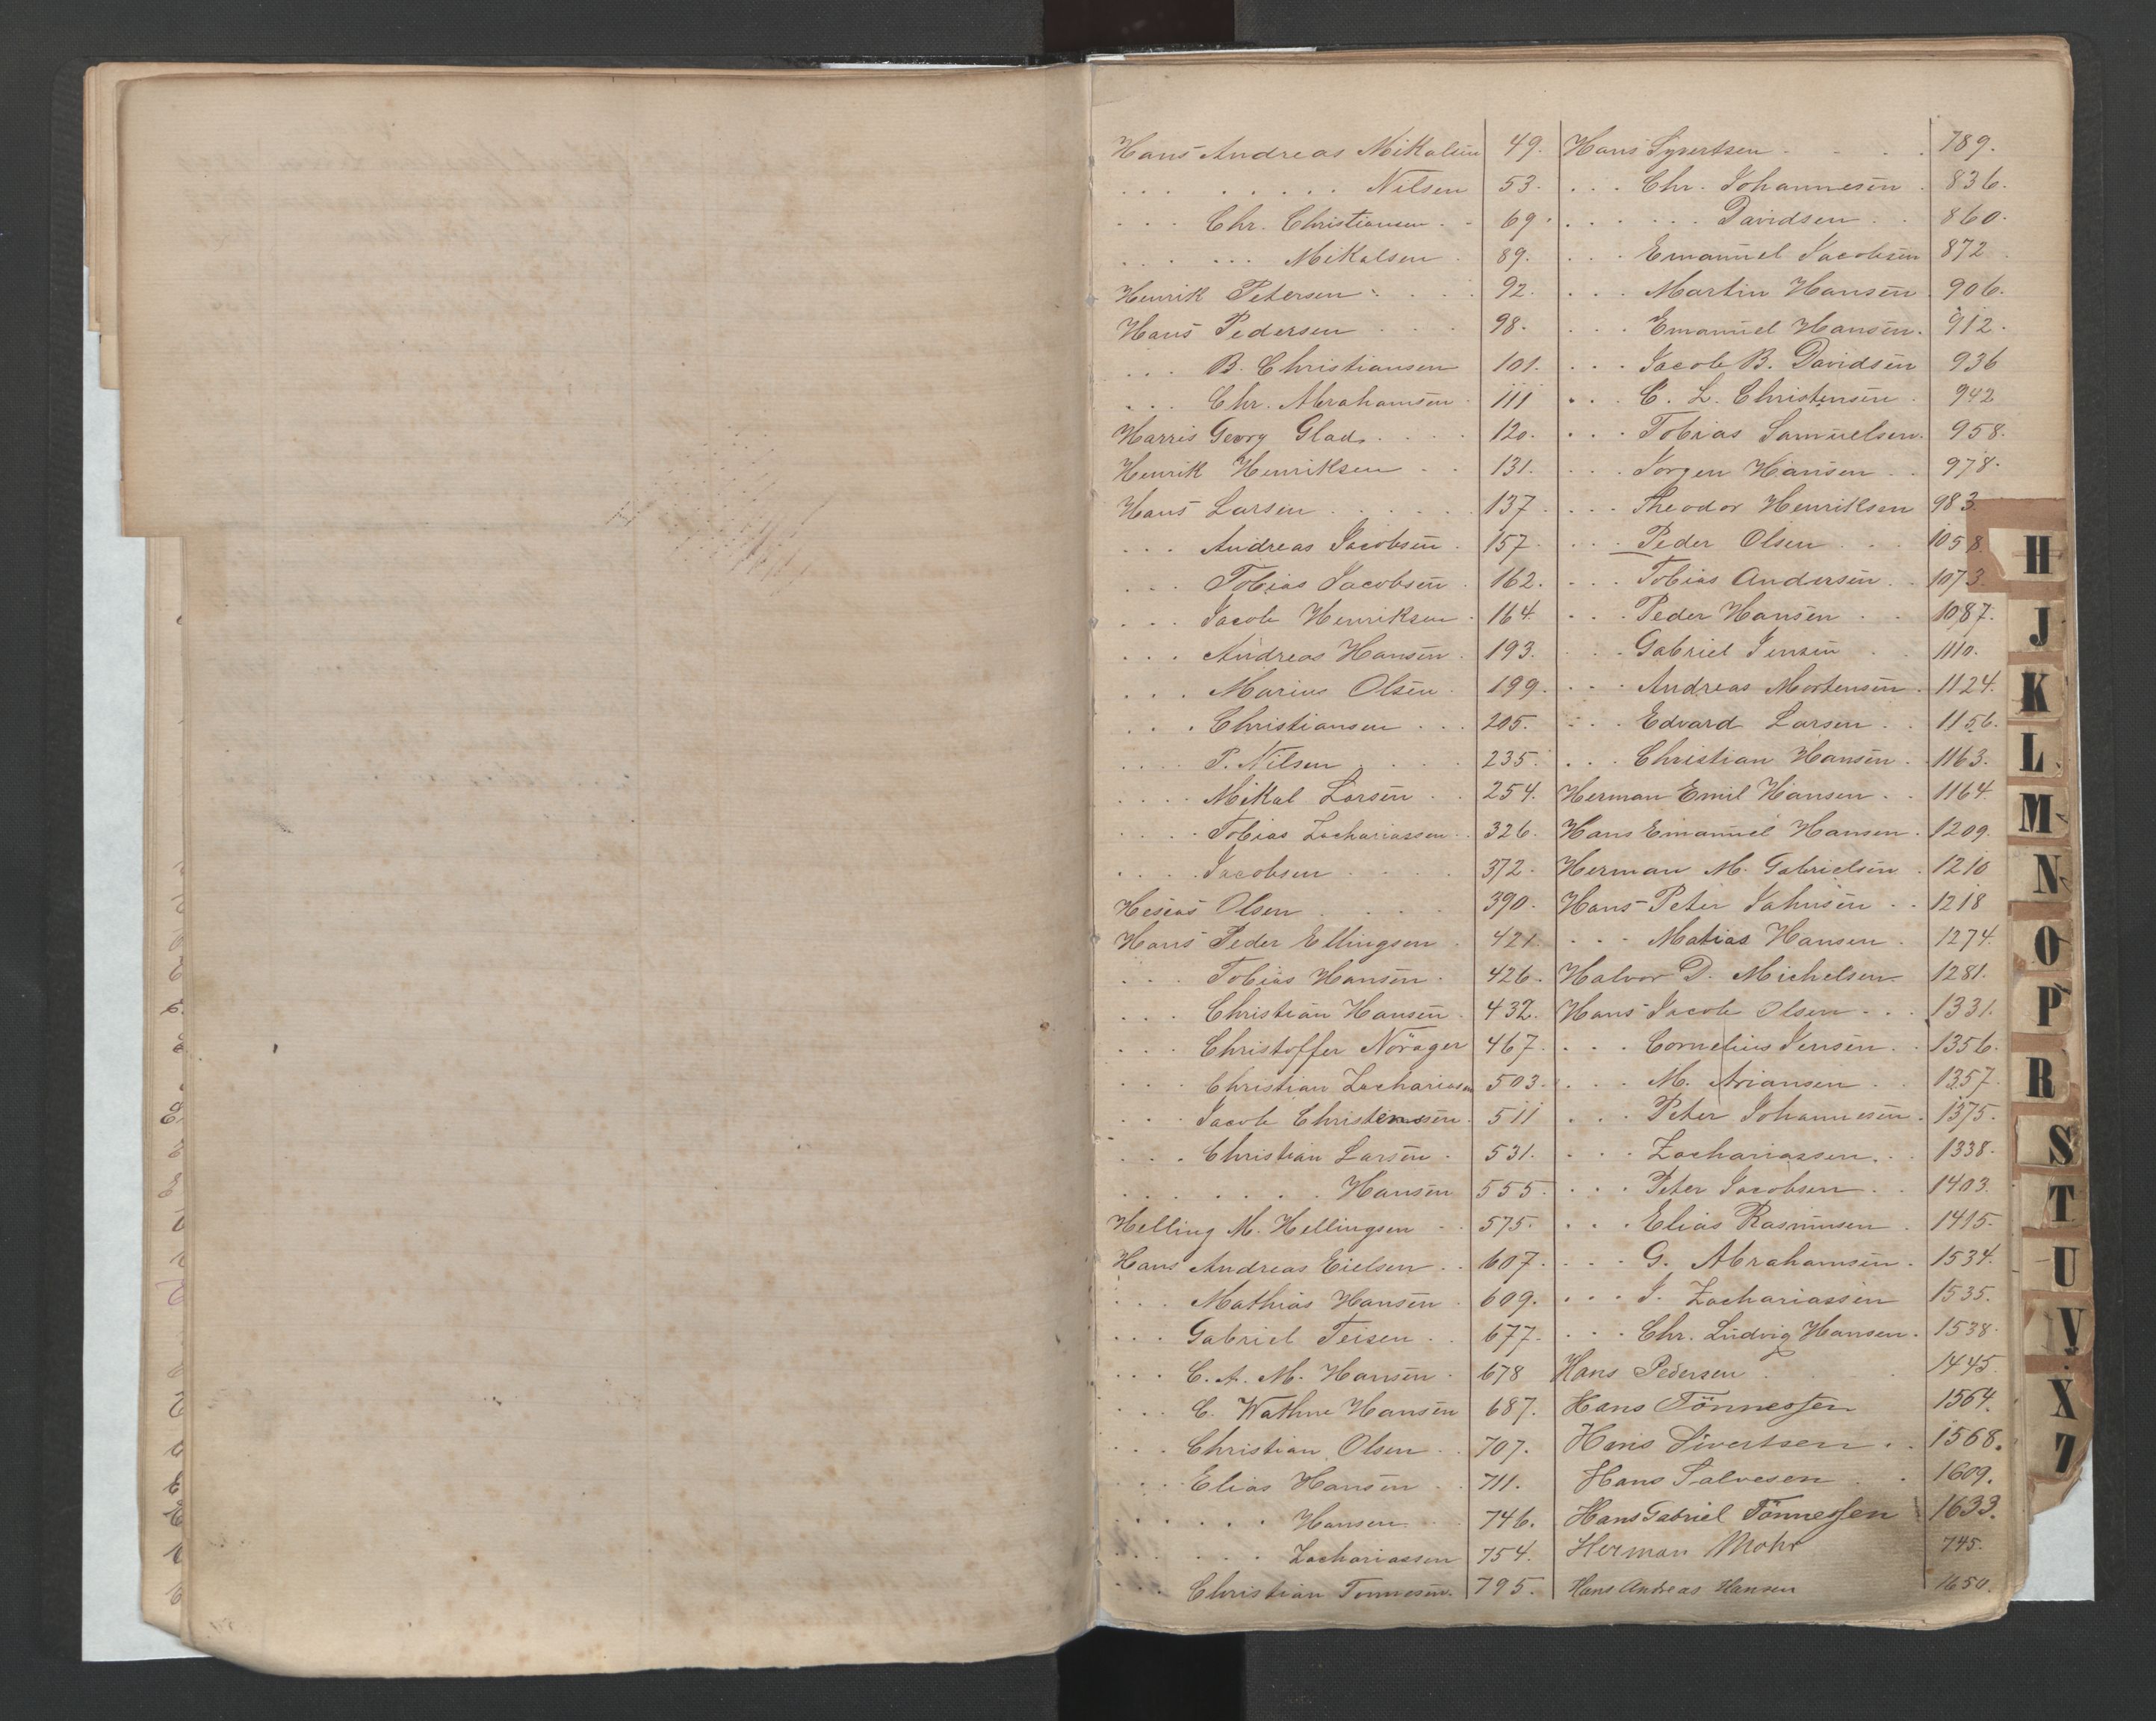 Hans Andreas Mikalsen 49.
. . . . . . . . Nilsen 53.
. . . Chr. Christiansen . . 69.
. . . . . . Mikalsen . 89.
Henrik Petersen . . . . 92.
Hans Pedersen . . . 98.
. . . B. Christiansen 101.
. . . Chr. Abrahamsen . 111
Harris Georg Glad . . . . 120.
Henrik Henriksen . . 131.
Hans Larsen . . . . . . 137
. . . Andreas Jacobsen . 157
. . . Tobias Jacobsen . 162.
. . . Jacob Henriksen . 164.
. . . Andreas Hansen . 193.
. . . Marius Olsen . 199.
. . . Christiansen . . . 205.
. . . . P. Nilsen . . . . 235.
. . . . Mikal Larsen . . 254.
. . . . Tobias Zachariassen . . 326.
. . . . Jacobsen . . . . 372.
Olsen . . . . 390.
Hans Peder Ellingsen . 421.
. . . Tobias Hansen . 426.
. . . Christian Hansen . 432.
. . . Christoffer Nörager 467.
. . . Christian Zachariasen 503.
. . . Jacob Christensen . 511
. . . Christian Larsen . 531.
. . . . . . . Hansen 555.
Helling M. Hellingsen . . 575.
Hans Andreas Eielsen . . 607.
. . . Mathias Hansen . 609.
. . . Gabriel Teisen . . 677.
. . . C. A. M. Hansen . 678
. . . C. Wathne Hansen 687.
. . . Christian Olsen . . 707.
. . . Elias Hansen . . 711.
. . . . . . Hansen . . 746.
. . . . . . Zachariassen 754.
. . . Christian Tønnesen. 795.
Hans Syvertsen . . . . 789.
. . . Chr. Johannesen . 836.
. . . . . . Davidsen . . 860.
. . . Emanuel Jacobsen 872
. . . Martin Hansen . 906.
. . . Emanuel Hansen . 912.
. . . Jacob B. Davidsen 936
. . . C. L. Christensen . 942
. . . Tobias Samuelsen. 958.
. . . Jörgen Hansen . . 978.
. . . Theodor Henriksen 983.
. . . Peder Olsen . . . 1058.
. . . Tobias Andersen . . 1073.
. . . Peder Hansen . . 1087.
. . . Gabriel Jensen . . 1110.
. . . Andreas Mortensen . 1124.
. . . Edvard Larsen . . 1156.
. . . Christian Hansen . 1163.
Herman Emil Hansen . . 1164.
Hans Emanuel Hansen . 1209.
Herman M. Gabrielsen . 1210
Hans Peter Jahnsen . . 1218
. . . Matias Hansen . 1274.
Halvor D. Michelsen 1281.
Hans Jacob Olsen . . . 1331.
. . . Cornelius Jensen . . 1356.
. . . M. Ariansen . . 1357.
. . . Peter Johannesen . 1375.
. . . Zachariassen . . 1338.
. . . Peter Jacobsen . . 1403.
. . . Elias Rasmusen . 1415.
. . . G. Abrahamsen . 1534.
. . . J. Zachariassen 1535.
. . . Chr. Ludvig Hansen . 1538.
Hans Pedersen . . 1445.
Hans Tönnessen 1564.
Hans Sivertsen . . 1568.
Hans Salvesen . . 1609.
Hans Gabriel Tönnessen 1633.
Herman Mohr 745.
Hans Andreas Hansen 1650.
H
J
K
L
M
N
O
P
R
S
T
U
V
X